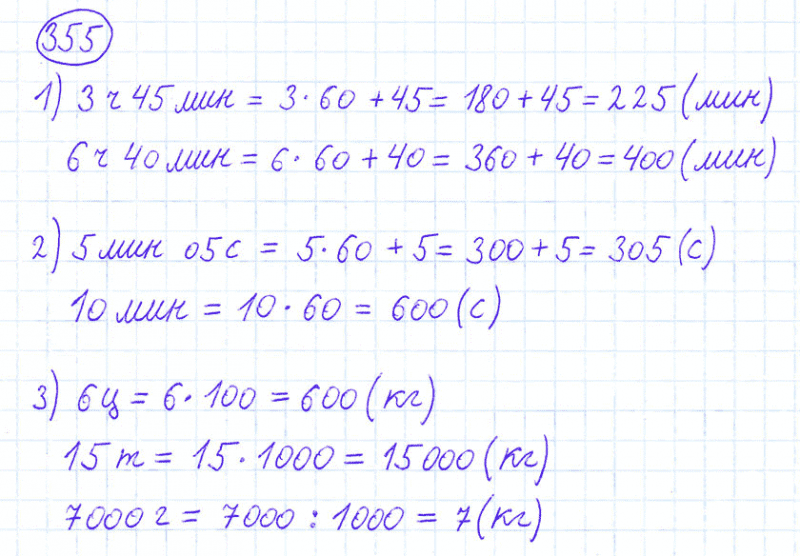 355
1) 3 ч 45 мин = 3 · 60 + 45 = 180 + 45 = 225 (мин)
6 ч 40 мин = 6 · 60 + 40 = 360 + 40 = 400 (мин)
2) 5 мин 05 с = 5 · 60 + 5 = 300 + 5 = 305 (с)
10 мин = 10 · 60 = 600 (с)
3) 6 ц = 6 · 100 = 600 (кг)
15 т = 15 · 1000 = 15000 (кг)
7000 г = 7000 : 1000 = 7 (кг)